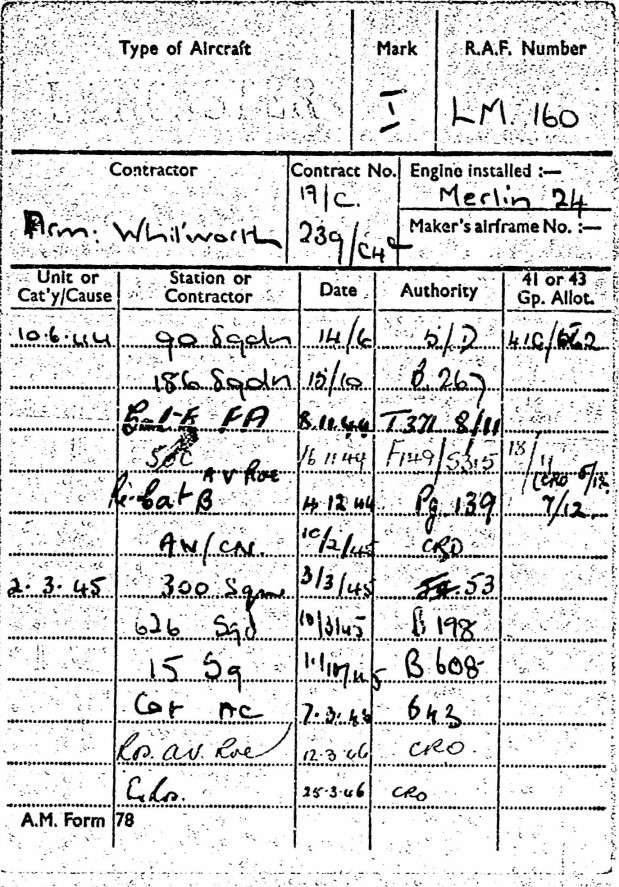 Type of Aircraft Mark R.A.F. Number
LANCASTER I LM. 160
Contractor Contract No. Engine installed :—
19/C. Merlin 24
Arm: Whitworth 239/C4 Maker's airframe No. :—
Unit or Cat'y/Cause Station or Contractor Date Authority 41 or 43 Gp. Allot.
10.6.44 90 Sqdn 14/6 S/D
186 Sqdn 15/10 B.267
FA 8.11.44 T.371 8/11
SOC 16 11 44 F1149/S315 18/11
AV Roe (CRO
Re-Cat B 4 12 44 Pg. 139 7/12.
AW/CN. 10/2/45 CRD
2.3.45 300 Sqn 3/3/45 53
626 Sqd 10/3/45 B 198
15 Sq B 608
Cat AC 7.3.46 643
Ros. A.V. Roe 12-3-46 CRO
25-3-46 CRO
A.M. Form 78